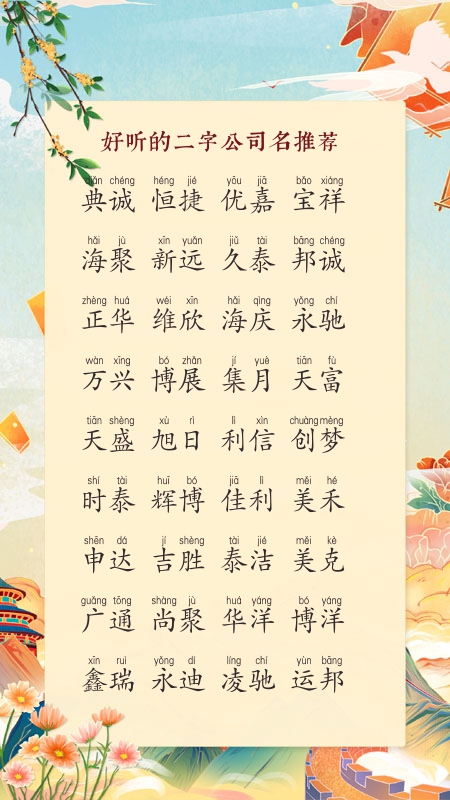 好听的二字公司名推荐
diǎn chéng héng jié yōu jiā bǎo xiáng
典诚 恒捷 优嘉 宝祥
hǎi jù xīn yuǎn jiǔ tài bāng chéng
海聚 新远 久泰 邦诚
zhèng huá wéi xīn hǎi qìng yǒng chí
正华 维欣 海庆 永驰
wàn xīng bó zhǎn jí yuè tiān fù
万兴 博展 集月 天富
tiān shèng xù rì lì xìn chuàng mèng
天盛 旭日 利信 创梦
shí tài huī bó jiā lì měi hé
时泰 辉博 佳利 美禾
shēn dá jí shèng tài jié měi kè
申达 吉胜 泰洁 美克
guǎng tōng shàng jù huá yáng bó yáng
广通 尚聚 华洋 博洋
xīn ruì yǒng dí líng chí yùn bāng
鑫瑞 永迪 凌驰 运邦